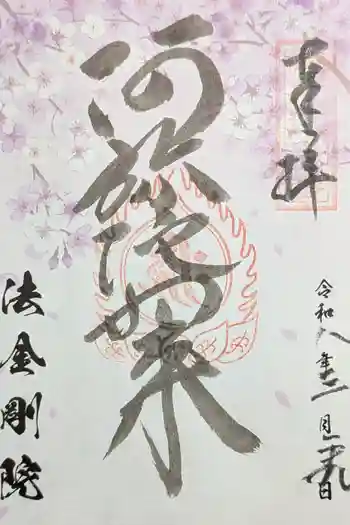 奉拝
阿弥陀如来
令和八年三月二十九日
法金剛院